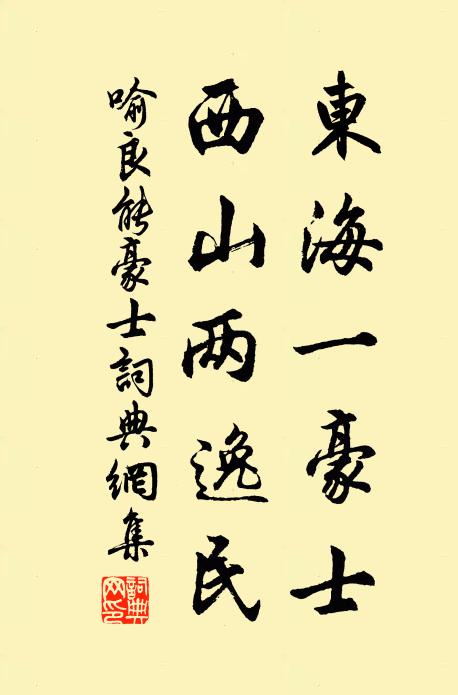 東海一豪士
西山两逸民
喻良能豪士詞典網集
詞典網印